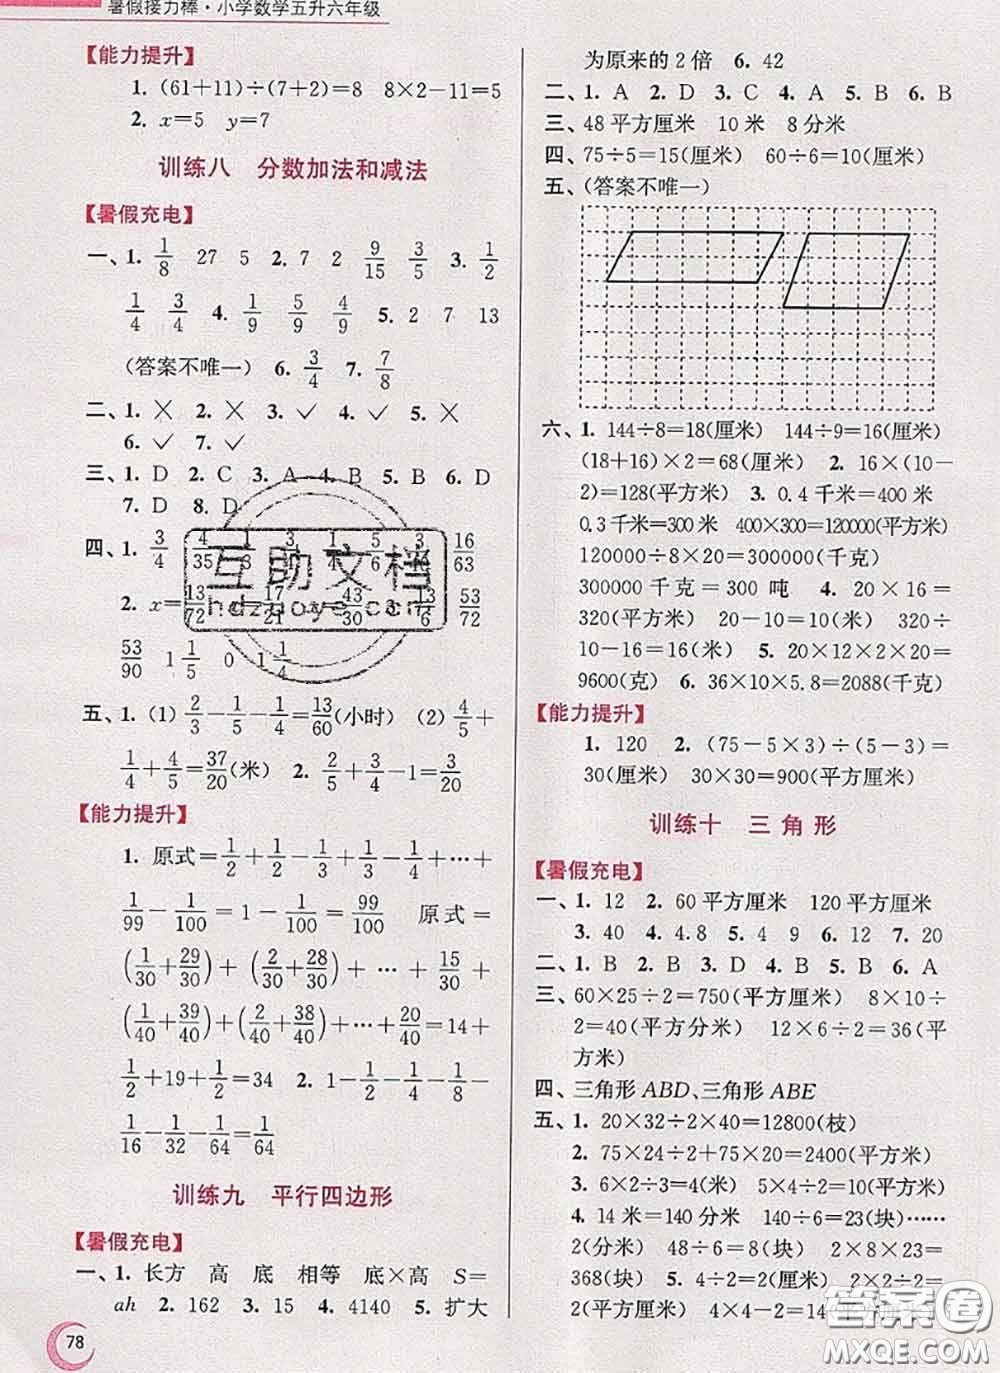 暑假接力棒·小学数学五升六年级
【能力提升】
1. (61+11)÷(7+2)=8 8×2-11=5
2. x=5 y=7
训练八 分数加法和减法
【暑假充电】
一、1. 1/8 27 5 2. 7 2 9/15 3/5 3. 1/2
1/4 3/4 4. 1/9 5/9 4/9 5. 2 7 13
(答案不唯一) 6. 3/4 7. 7/8
二、1. ✕ 2. ✕ 3. ✓ 4. ✓ 5. ✕
6. ✓ 7. ✓
三、1. D 2. C 3. A 4. B 5. B 6. D
7. D 8. D
四、1. 3/4 4/35 1/3 3/4 1/4 5/6 3/10 16/63
2. x=13/72 x=17/21 x=43/30 3. 13/6 53/72
53/90 1 1/5 0 1 1/4
五、1. (1) 2/3-1/5-1/4=13/60(小时) (2) 4/5+
1/4+4/5=37/20(米) 2. 2/5+3/4-1=3/20
【能力提升】
1. 原式=1/2+1/2-1/3+1/3-1/4+⋯+
1/99-1/100=1-1/100=99/100 原式=
(1/30+29/30)+(2/30+28/30)+⋯+15/30+
(1/40+39/40)+(2/40+38/40)+⋯+20/40=14+
1/2+19+1/2=34 2. 1-1/2-1/4-1/8-
1/16-1/32-1/64=1/64
训练九 平行四边形
【暑假充电】
一、1. 长方 高 底 相等 底×高 S=
ah 2. 162 3. 15 4. 4140 5. 扩大
78
为原来的2倍 6. 42
二、1. A 2. D 3. C 4. A 5. B 6. B
三、48平方厘米 10米 8分米
四、75÷5=15(厘米) 60÷6=10(厘米)
五、(答案不唯一)
六、1. 144÷8=18(厘米) 144÷9=16(厘米)
(18+16)×2=68(厘米) 2. 16×(10-
2)=128(平方米) 3. 0.4千米=400米
0.3千米=300米 400×300=120000(平方米)
120000÷8×20=300000(千克)
300000千克=300吨 4. 20×16=
320(平方米) 320÷10=32(米) 320÷
10-16=16(米) 5. 20×12×2×20=
9600(克) 6. 36×10×5.8=2088(千克)
【能力提升】
1. 120 2. (75-5×3)÷(5-3)=
30(厘米) 30×30=900(平方厘米)
训练十 三角形
【暑假充电】
一、1. 12 2. 60平方厘米 120平方厘米
3. 40 4. 4.8 5. 4 9 6. 12 7. 20
二、1. B 2. B 3. D 4. B 5. B 6. A
三、60×25÷2=750(平方厘米) 8×10÷
2=40(平方分米) 12×6÷2=36(平
方米)
四、三角形ABD、三角形ABE
五、1. 20×32÷2×40=12800(枝)
2. 75×24÷2+75×20=2400(平方米)
3. 6×2÷3=4(米) 5×4÷2=10(平方米)
4. 14米=140分米 140÷6=23(块)……
2(分米) 48÷6=8(块) 23×8×2=
368(块) 5. 4÷2=2(厘米) 2×2÷2=
2(平方厘米) 4×4÷2=
互助文档
hdzuoye.com
答案卷
MXQE.COM